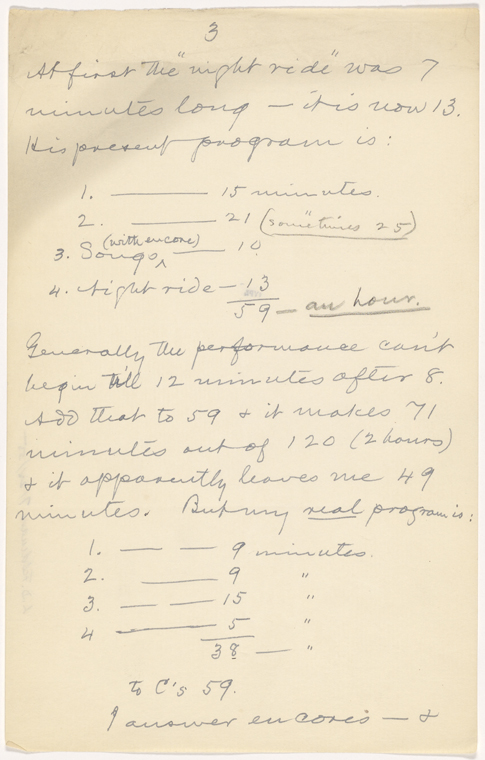 3
At first the "night ride" was 7
minutes long — it is now 13.
His present program is:
1. ——— 15 minutes.
2. ——— 21 (sometimes 25)
(with encore)
3. Songs ^ —— 10
4. Night ride — 13
59 — an hour.
Generally the performance can't
begin till 12 minutes after 8.
Add that to 59 & it makes 71
minutes out of 120 (2 hours)
& it apparently leaves me 49
minutes. But my real program is:
1. — — 9 minutes.
2. —— 9 "
3. — — 15 "
4 ——— 5 "
38 — "
to C's 59.
I answer encores — &